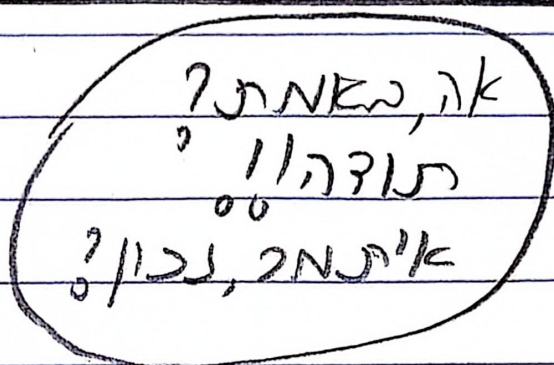 אה, באמת?
תודה!!
איתמר, נכון?